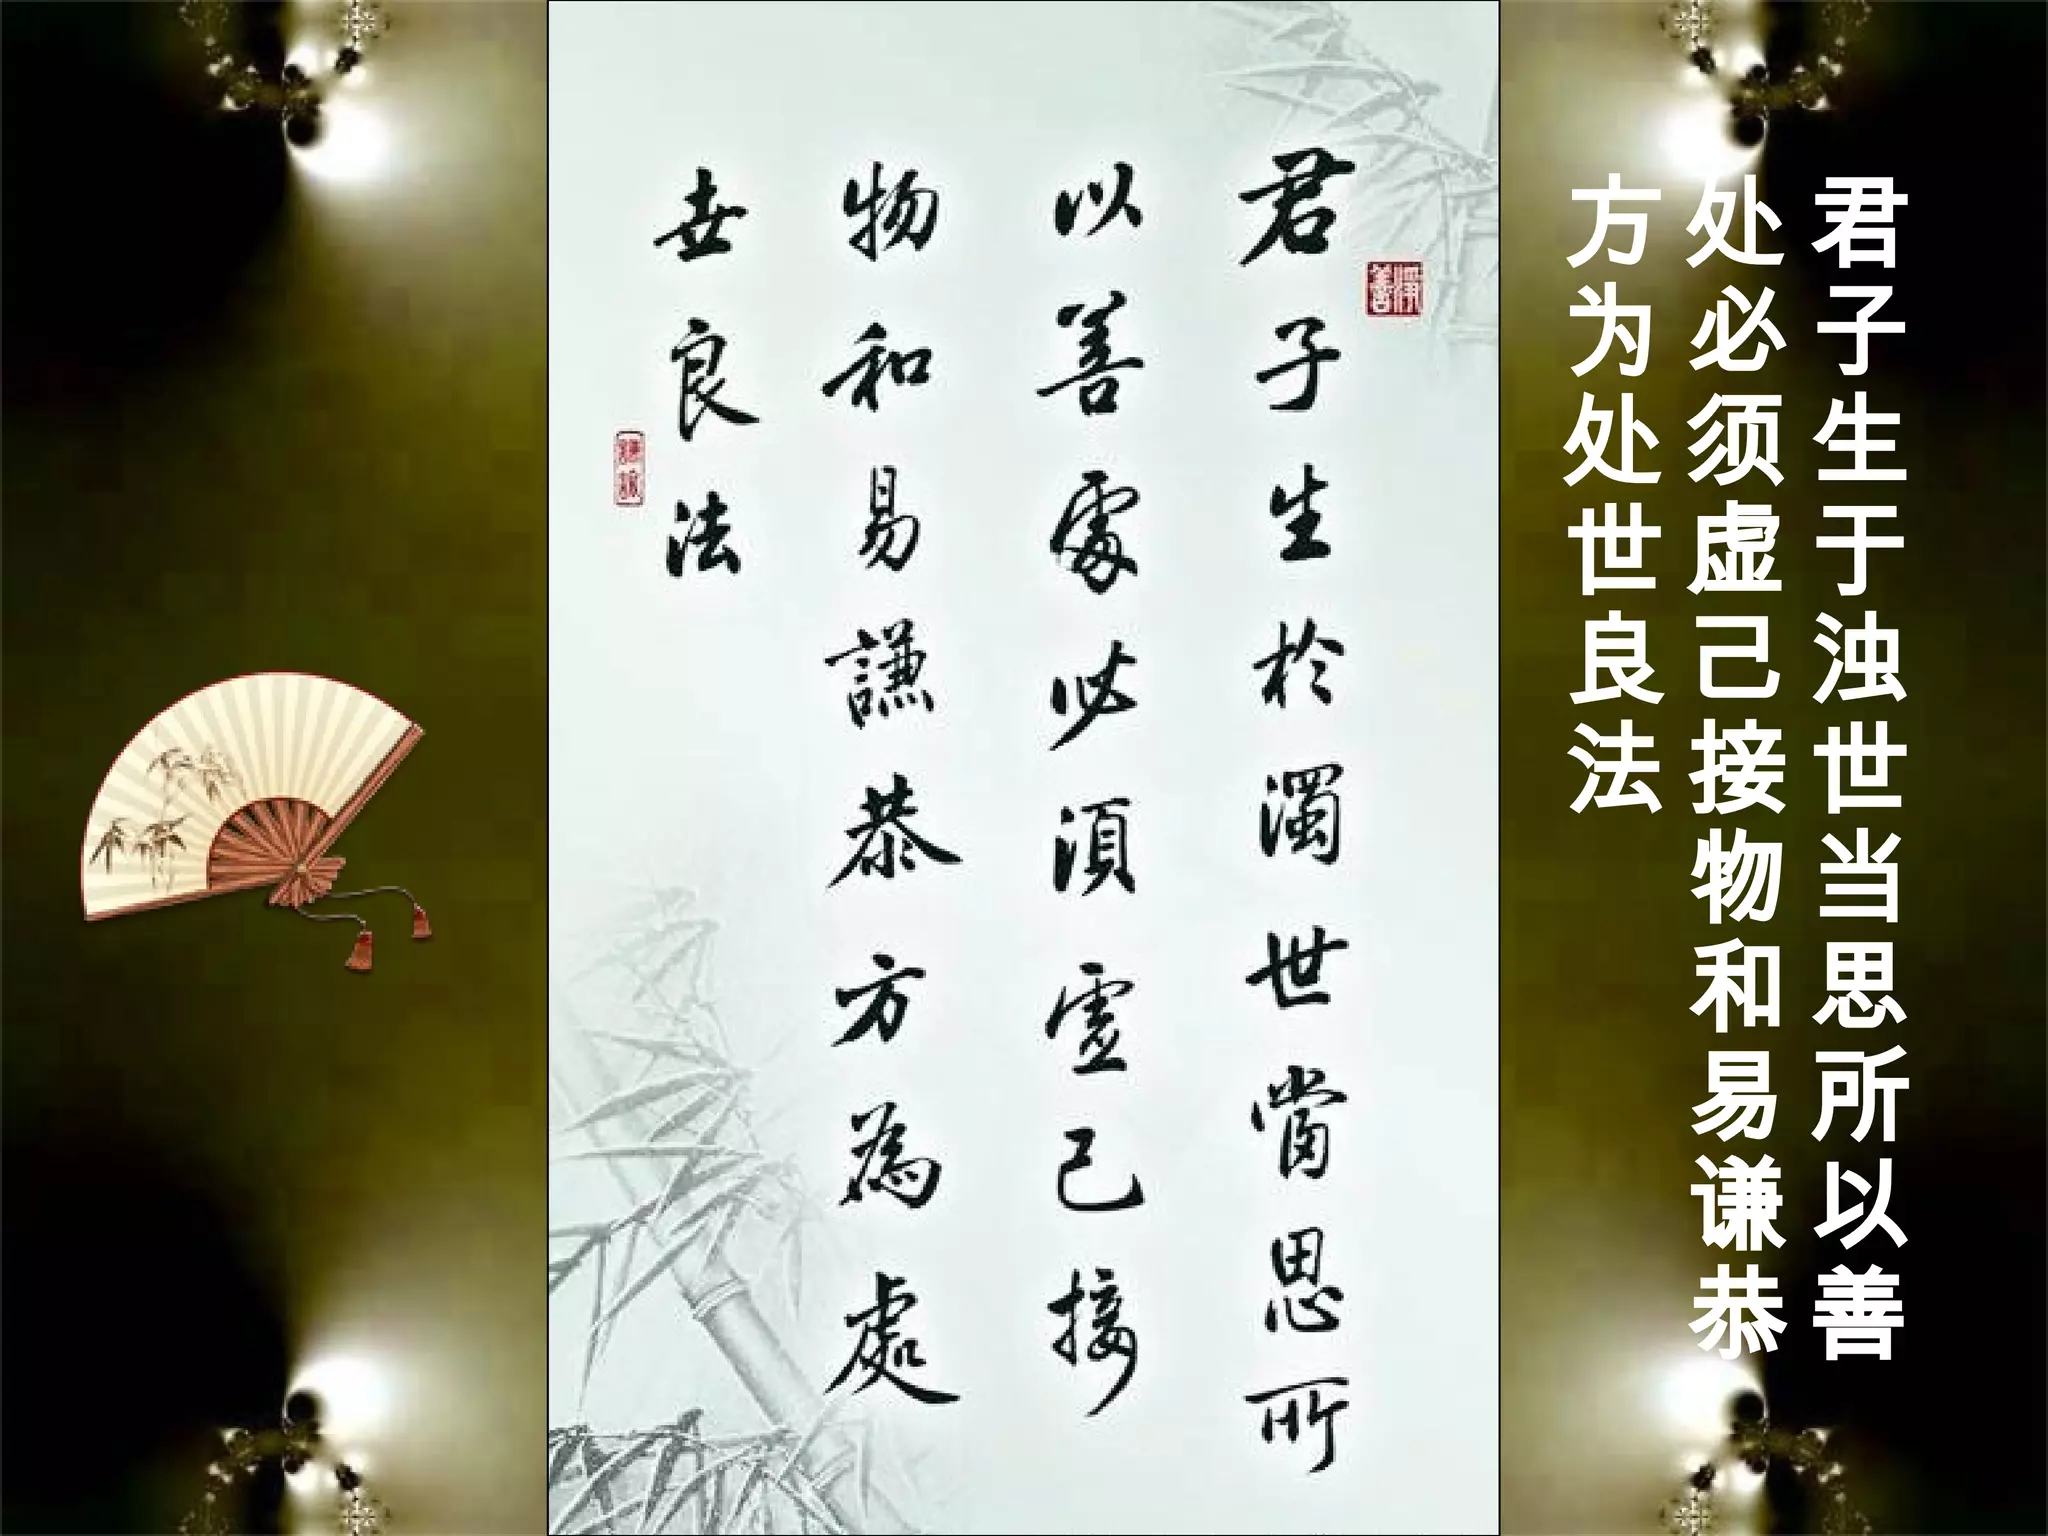 君子生于浊世当思所以善
处必须虚己接物和易谦恭
方为处世良法
君子生於濁世當思所
以善處必須虛己接
物和易謙恭方為處
世良法